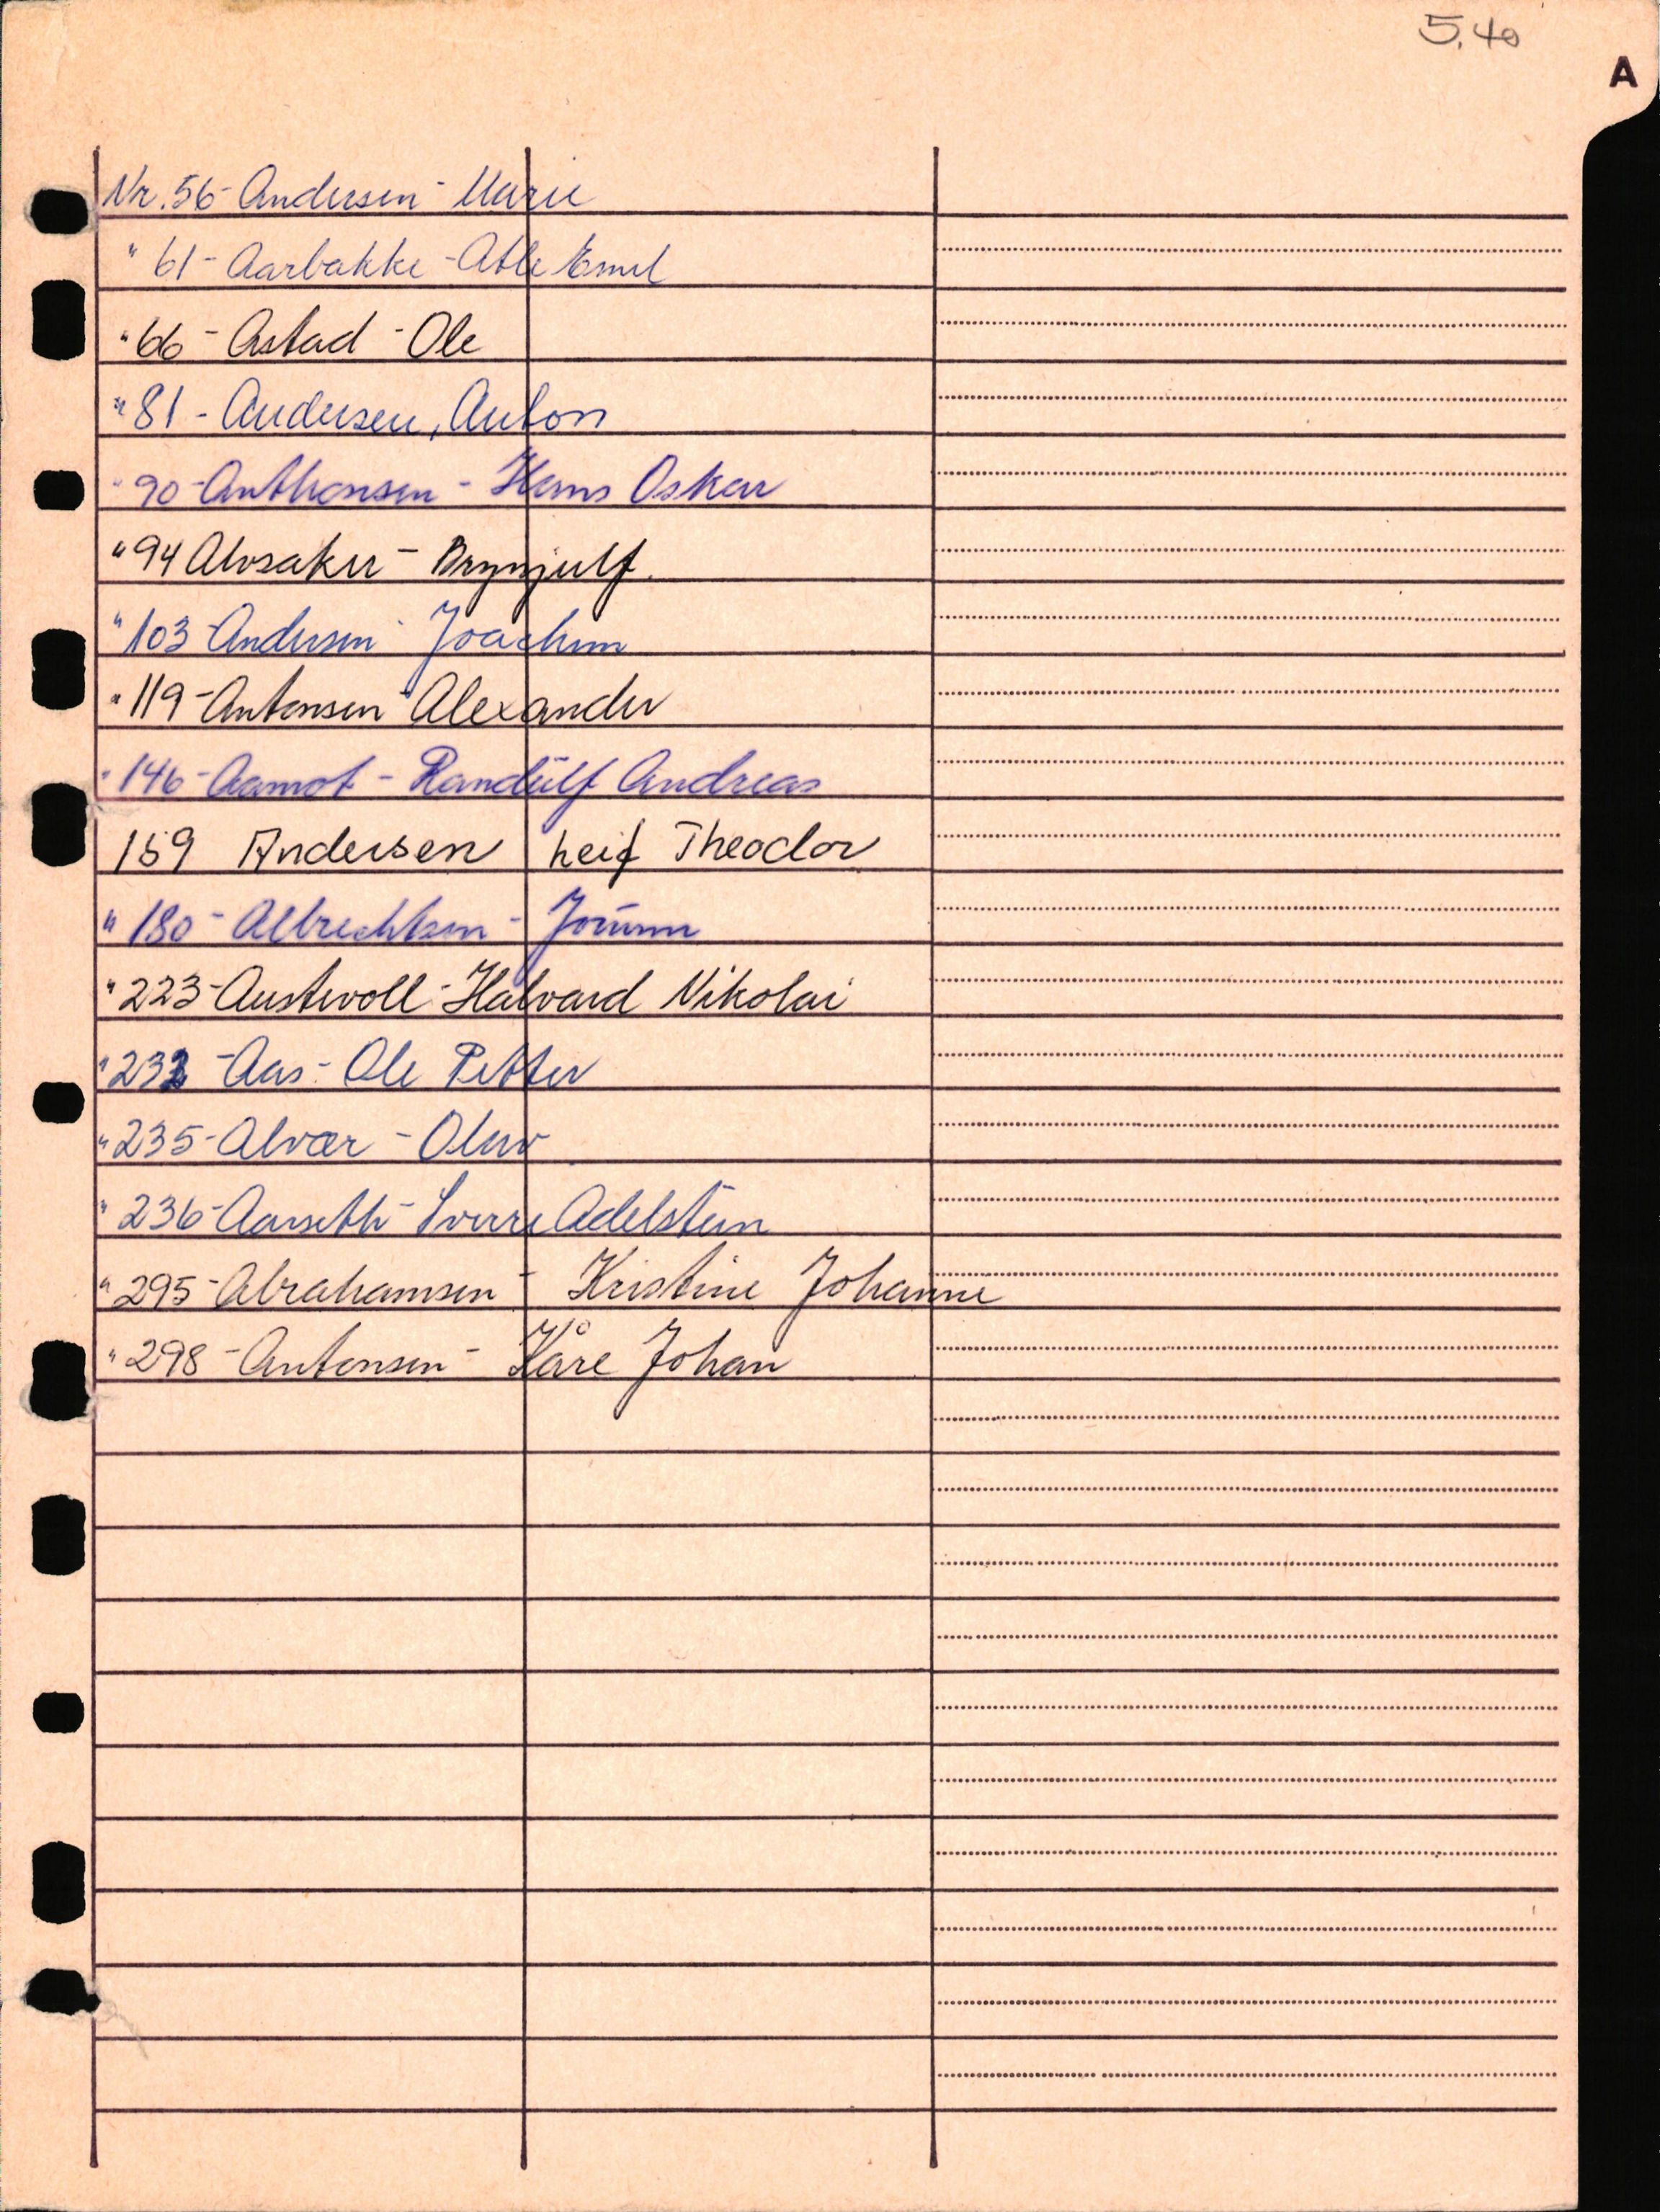 5.40
A
Nr. 56 - Andersen - Marie
" 61 - Aarbakke - Atle Emil
" 66 - Astad - Ole
" 81 - Andersen, Anton
" 90 - Anthonsen - Hans Oskar
" 94 Alvsaker - Brynjulf.
" 103 - Andersen - Joachim
" 119 - Antonsen - Alexander
" 146 - Aamot - Randulf Andreas
159 Andersen Leif Theodor
" 180 - Albrechtsen - Jorunn
" 223 - Austevoll - Halvard Nikolai
" 232 - Aas - Ole Petter
" 235 - Alvær - Olav
" 236 - Aarseth - Sverre Adelstein
" 295 - Abrahamsen - Kristine Johanne
" 298 - Antonsen - Kåre Johan